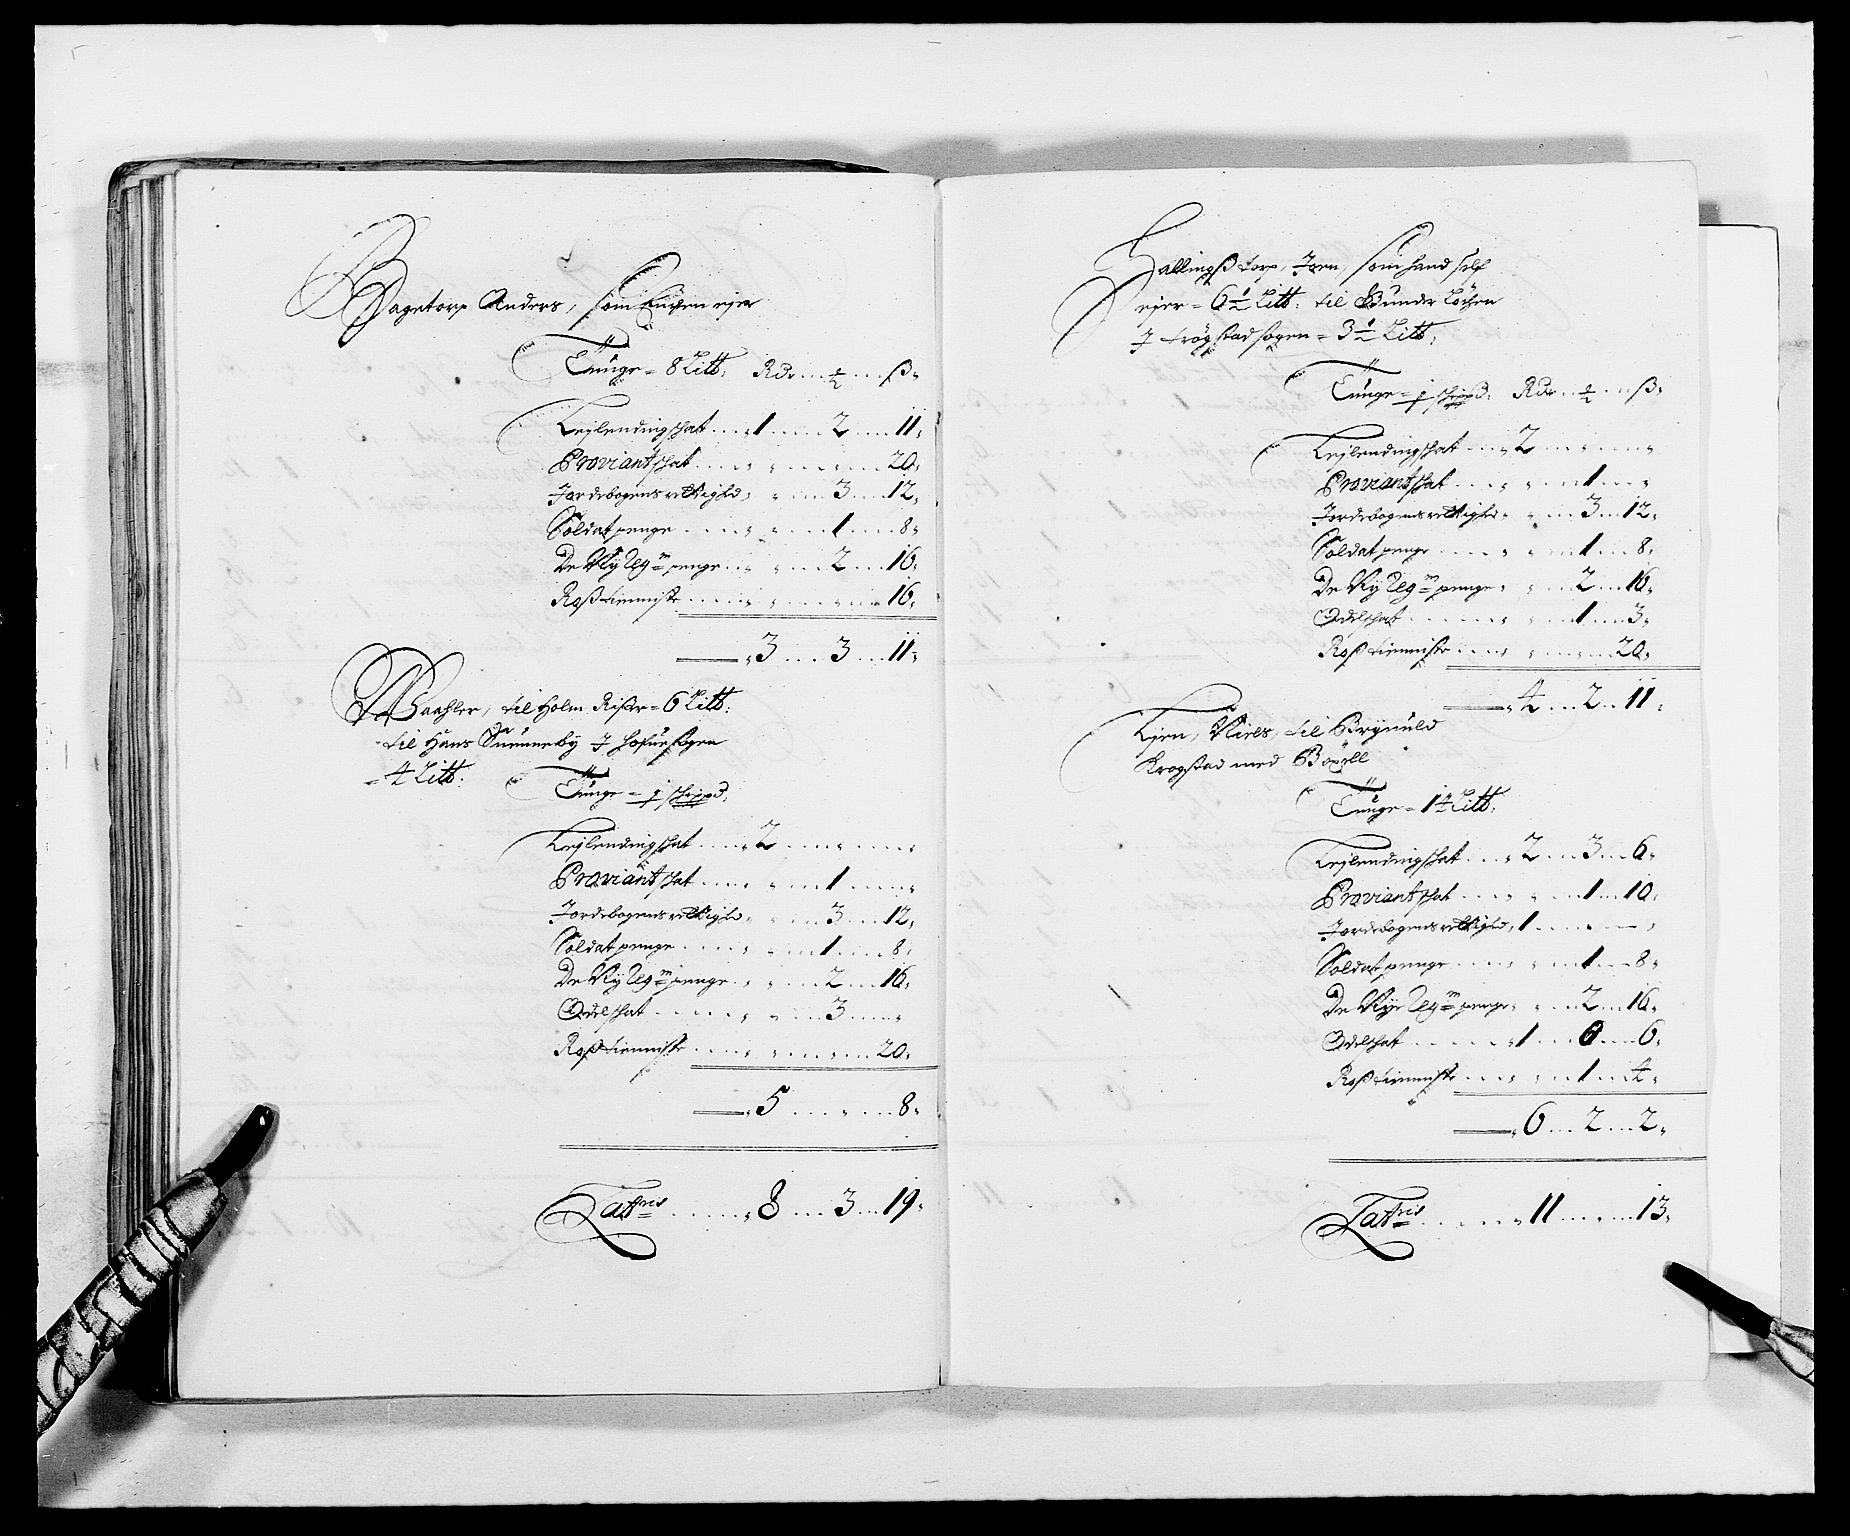 Bagetorp Anders, som Kirchen ejer
Tünge = 8 Litt: Rdr ... ß
Lejlendingschat .... 1 .... 2 .... 11
Proviantschat .... " .... " .... 20
Jordebogens rettighd .... " .... 3 .... 12
Soldat penge .... " .... 1 .... 8
De Ny Reg:m penge .... " .... 2 .... 16
Roßtienniste .... " .... " .... 16
3 .... 3 .... 11
Waahler, til Holm Risør = 6 Litt:
til Hans Sünneby J Hofüe sogen
= 4 Litt:
Tünge = 1 schippd:
Lejlendingschat .... 2 .... " .... "
Proviantschat .... " .... 1 .... "
Jordebogens rettighd .... " .... 3 .... 12
Soldat penge .... " .... 1 .... 8
De Ny Reg:m penge .... " .... 2 .... 16
Odelschat .... " .... 3 .... "
Roßtienniste .... " .... " .... 20
5 .... " .... 8
Latris .... 8 .... 3 .... 19
Hallingß torp, Jven, som hand self
ejer = 6½ Litt: til Gunder
J Trögstad sogen = 3½ Litt:
Tünge = 1 schippd: Rdr ... ß
Lejlendingschat .... 2 .... " .... "
Proviantschat .... " .... 1 .... "
Jordebogens rettighd .... " .... 3 .... 12
Soldat penge .... " .... 1 .... 8
De Ny Reg:m penge .... " .... 2 .... 16
Odelschat .... " .... 1 .... 3
Roßtienniste .... " .... " .... 20
4 .... 2 .... 11
Lien, Niels, til Brynüld
Krogstad med Böxell
Tünge = 14 Litt:
Lejlendingschat .... 2 .... 3 .... 6
Proviantschat .... " .... 1 .... 10
Jordebogens rettighd .... 1 .... " .... "
Soldat penge .... " .... 1 .... 8
De Nye Reg:m penge .... " .... 2 .... 16
Odelschat .... 1 .... 0 .... 6
Roßtienniste .... " .... 1 .... 4
6 .... 2 .... 2
Latris .... 11 .... " .... 13